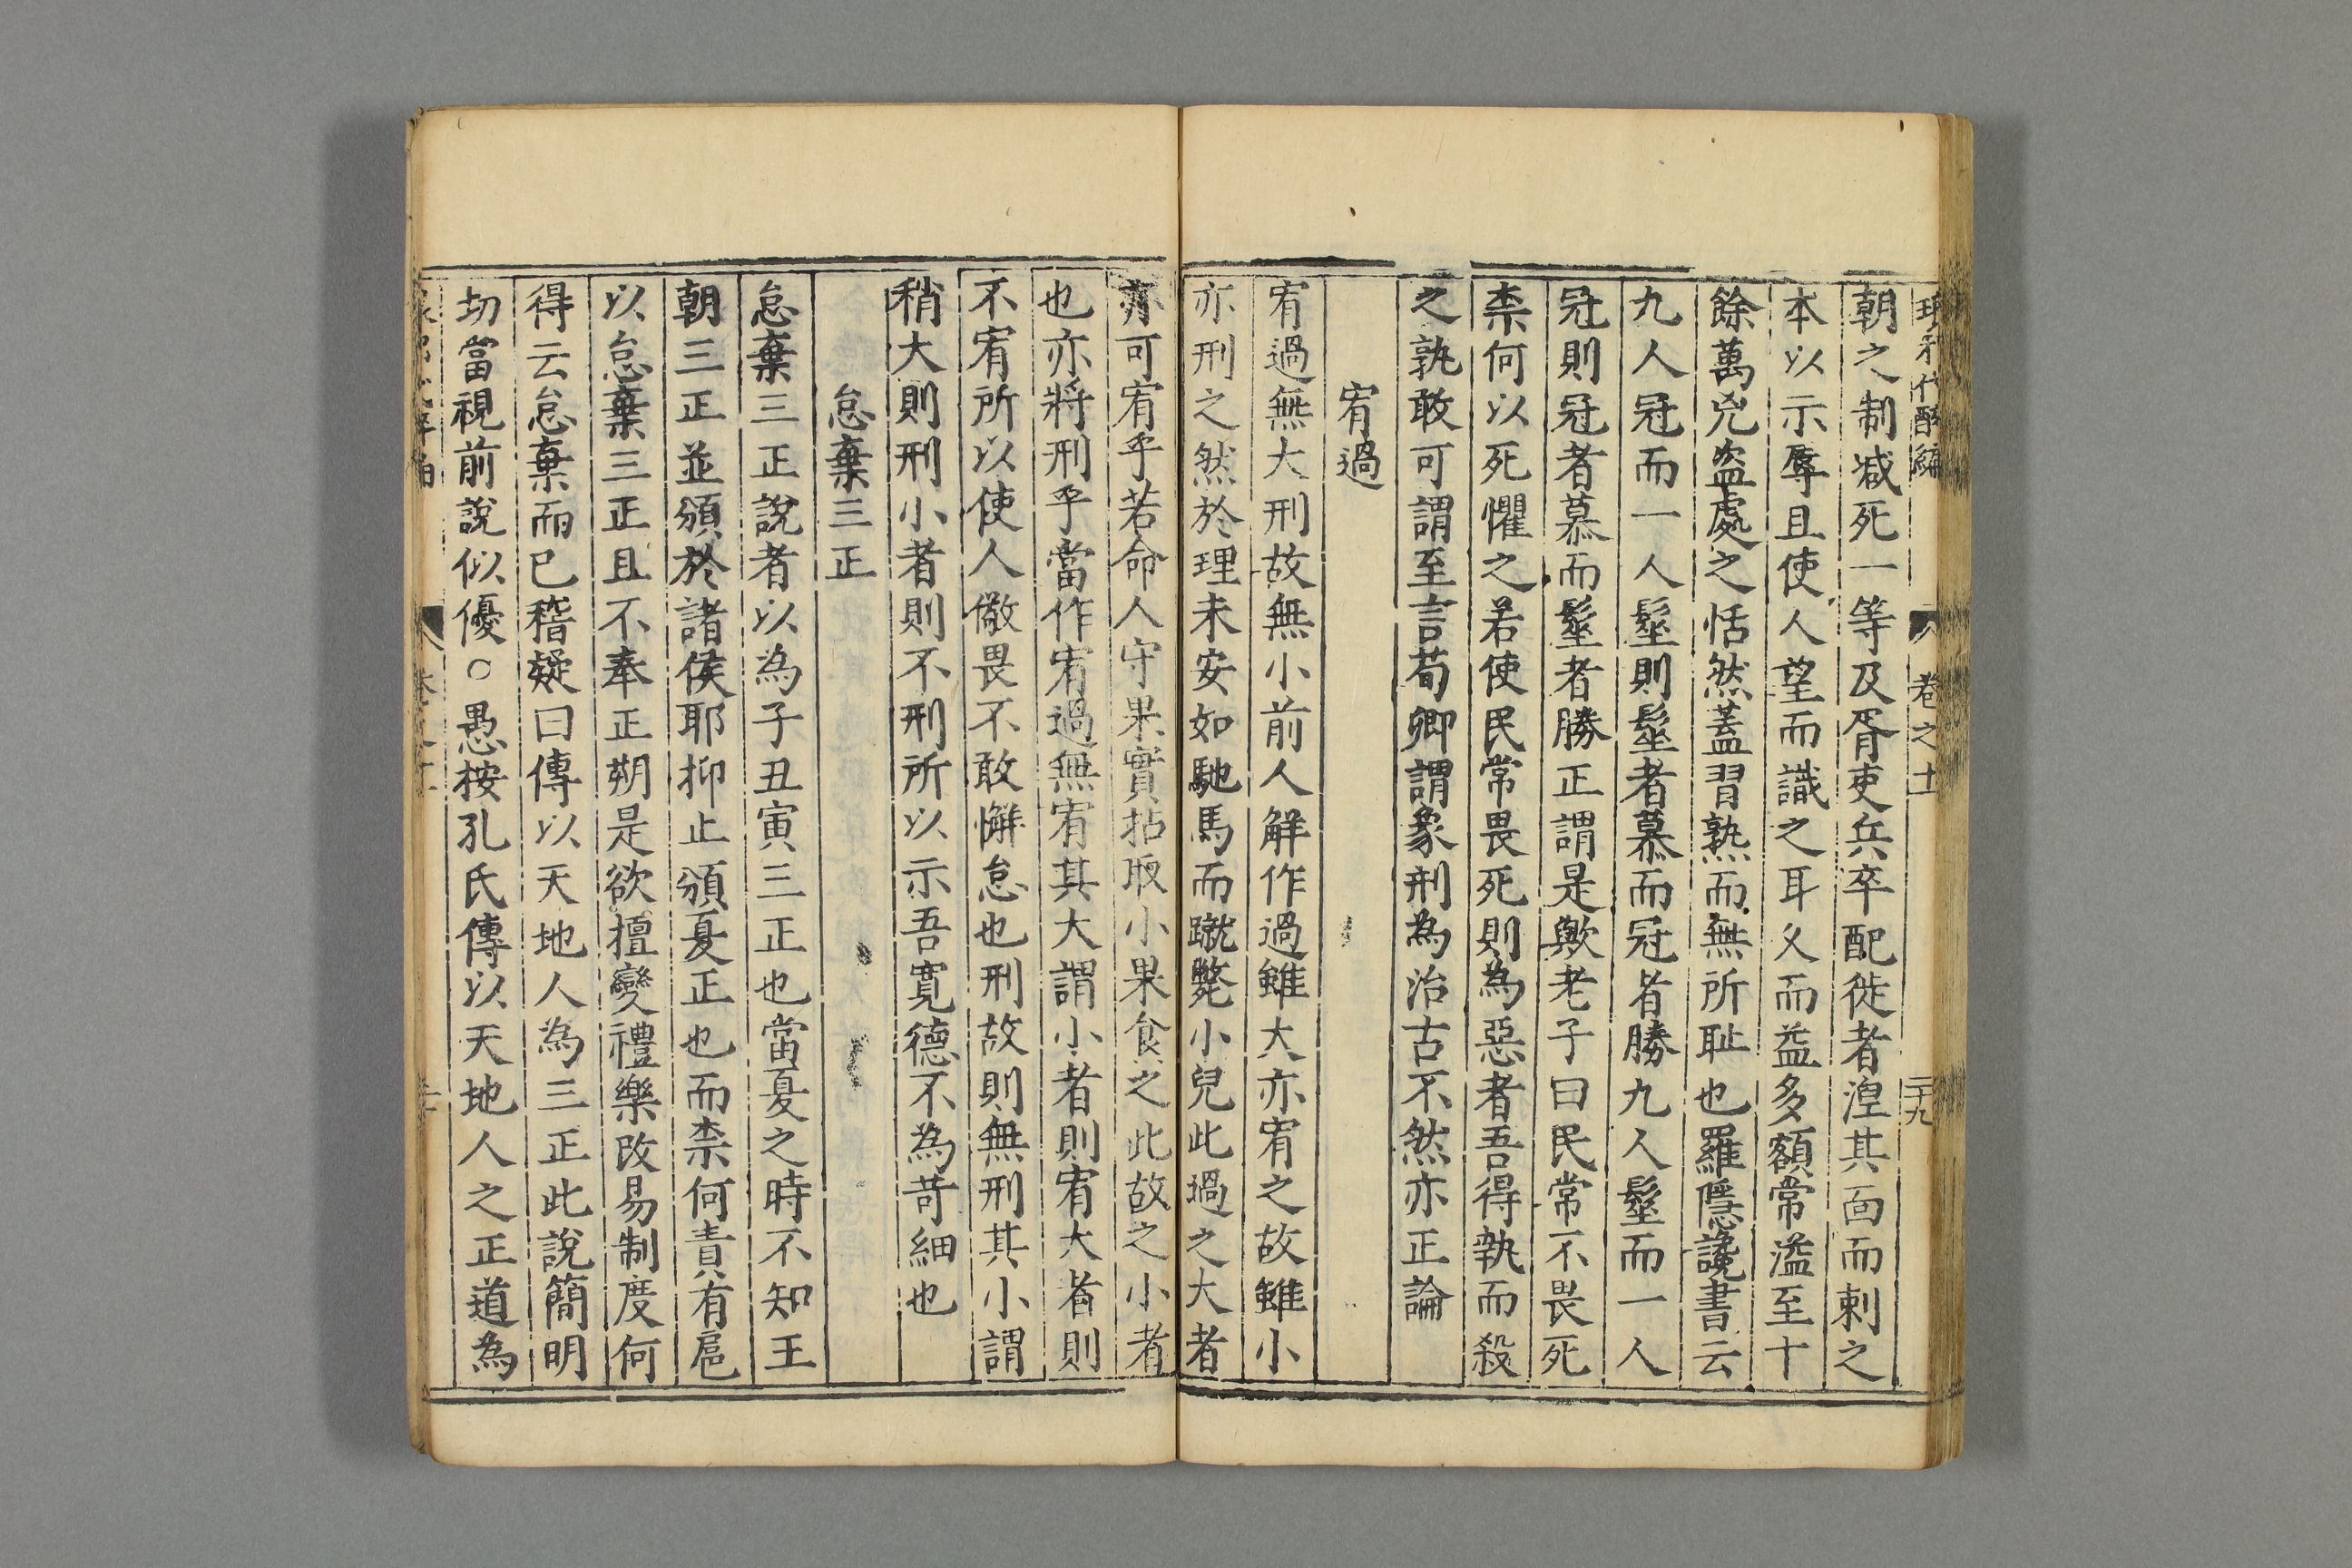 琅邪代醉編 卷之十 二十九
朝之制减死一等及胥吏兵卒配徙者湟其面而刺之
本以示辱且使人望而識之耳久而益多額常溢至十
餘萬兇盗處之恬然蓋習熟而無所耻也羅隱讒書云
九人冠而一人髽則髽者慕而冠者勝九人髽而一人
冠則冠者慕而髽者勝正謂是歟老子曰民常不畏死
柰何以死懼之若使民常畏死則為惡者吾得執而殺
之孰敢可謂至言荀卿謂象刑為治古不然亦正論
宥過
宥過無大刑故無小前人解作過雖大亦宥之故雖小
亦刑之然於理未安如馳馬而蹴斃小兒此過之大者
亦可宥乎若命人守果實拈取小果食之此故之小者
也亦將刑乎當作宥過無宥其大謂小者則宥大者則
不宥所以使人儆畏不敢懈怠也刑故則無刑其小謂
稍大則刑小者則不刑所以示吾寬德不為苛細也
怠棄三正
怠棄三正說者以為子丑寅三正也當夏之時不知王
朝三正並頒於諸侯耶抑止頒夏正也而柰何責有扈
以怠棄三正且不奉正朔是欲擅變禮樂改易制度何
得云怠棄而已稽疑曰傳以天地人為三正此說簡明
切當視前說似優○愚按孔氏傳以天地人之正道為